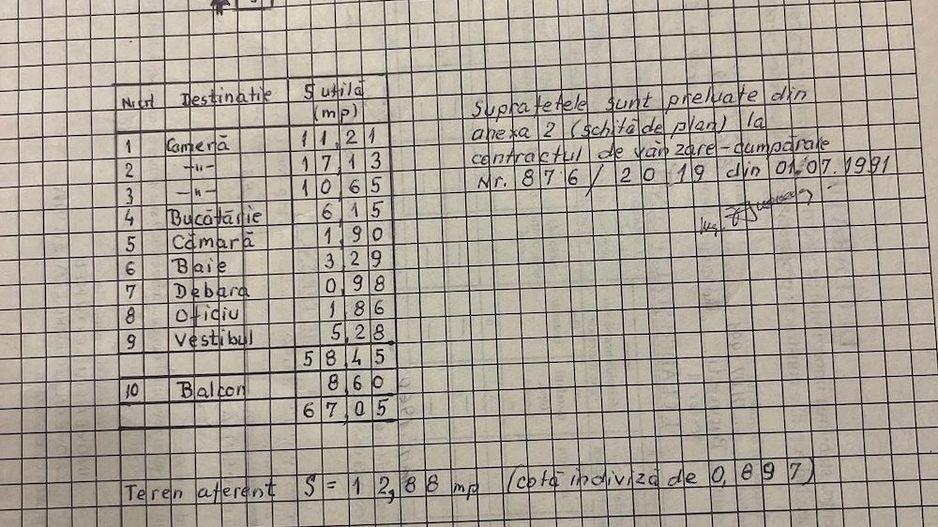 Nr.crt Destinație S utilă (mp)
1 Cameră 11,21
2 -"- 17,13
3 -"- 10,65
4 Bucătărie 6,15
5 Cămară 1,90
6 Baie 3,29
7 Debara 0,98
8 Oficiu 1,86
9 Vestibul 5,28
58,45
10 Balcon 8,60
67,05
Suprafețele sunt preluate din
anexa 2 (schiță de plan) la
contractul de vânzare-cumpărare
Nr. 876/2019 din 01.07.1991
Teren aferent S = 12,88 mp (cotă indiviză de 0,897)